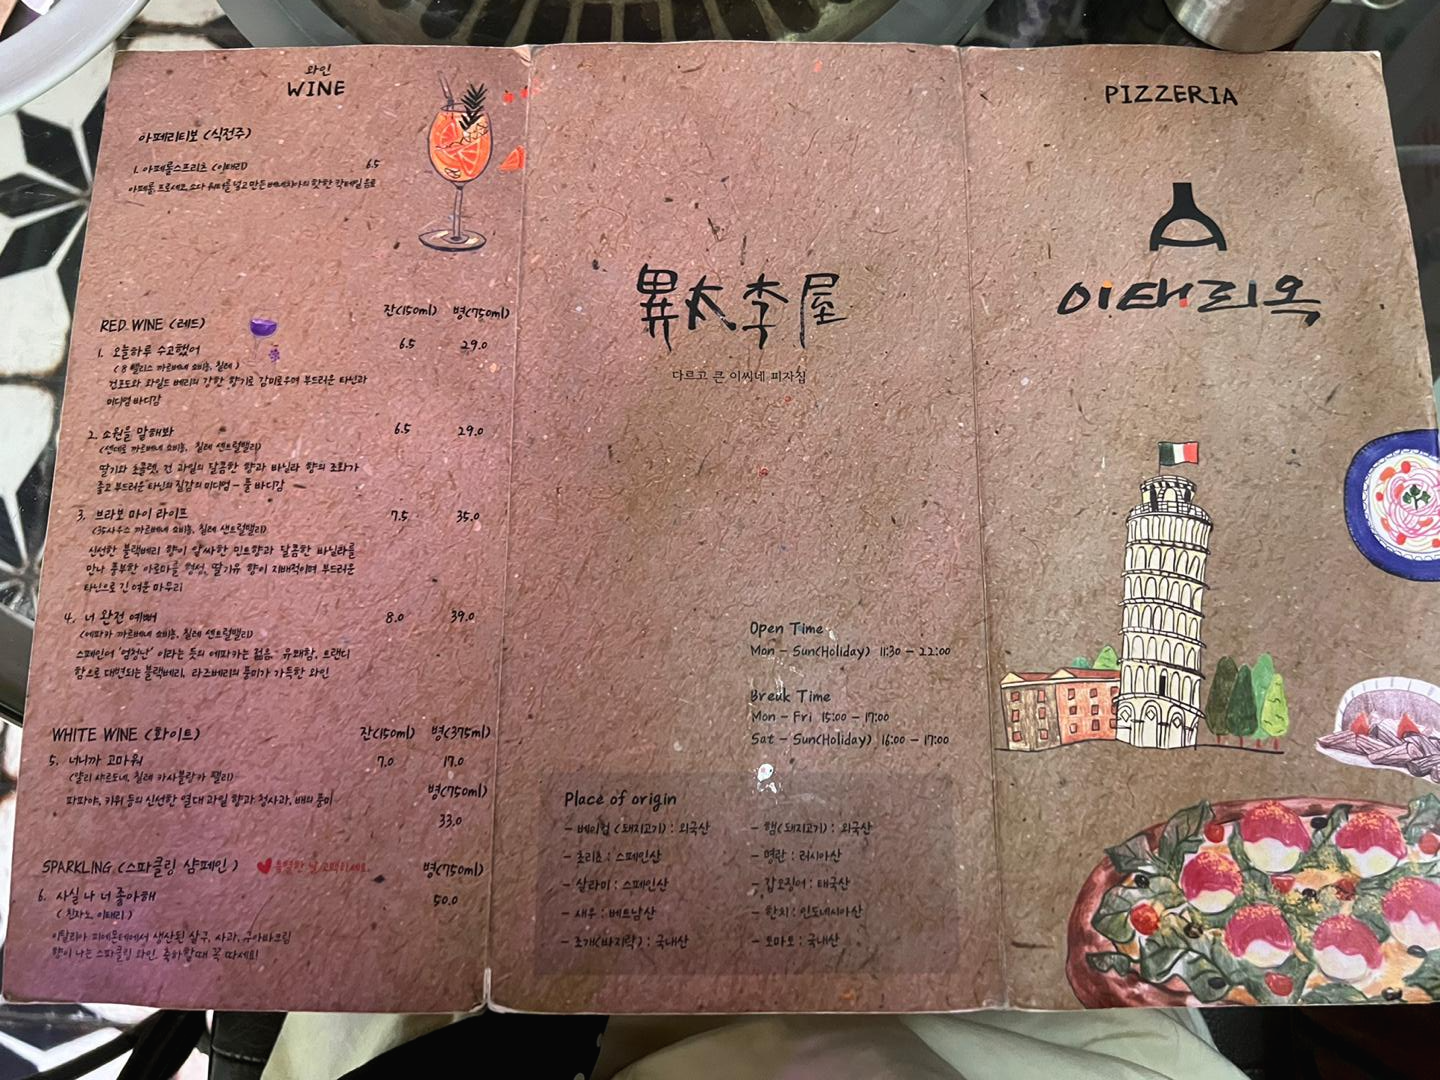 와인
WINE
아페리티보 (식전주)
1. 아페롤스프리츠 (이태리) 6.5
아페롤, 프로세코, 소다 워터를 넣고 만든 베네치아의 핫한 칵테일 음료
잔(150ml) 병(750ml)
RED WINE (레드)
1. 오늘하루 수고했어 6.5 29.0
( 8 밸리스 까르베네 쇼비뇽, 칠레 )
검포도와 와일드 베리의 강한 향기로 감미로우며 부드러운 타닌과
미디엄 바디감
2. 소원을 말해봐 6.5 29.0
(센데로 까르베네 쇼비뇽, 칠레 센트럴밸리)
딸기와 초콜렛, 건 과일의 달콤한 향과 바닐라 향의 조화가
좋고 부드러운 타닌의 질감의 미디엄 - 풀 바디감
3. 브라보 마이 라이프 7.5 35.0
(35사우스 까르베네 쇼비뇽, 칠레 샌트럴밸리)
신선한 블랙베리 향이 알싸한 민트향과 달콤한 바닐라를
만나 풍부한 아로마를 형성, 딸기유 향이 지배적이며 부드러운
타닌으로 긴 여운 마무리
4. 너 완전 예뻐 8.0 39.0
(에파카 까르베네 쇼비뇽, 칠레 센트럴밸리)
스페인어 '엄청난' 이라는 뜻의 에파카는 젊음, 유쾌함, 트랜디
함으로 대변되는 블랙베리, 라즈베리의 풍미가 가득한 와인
WHITE WINE (화이트) 잔(150ml) 병(375ml)
5. 너니까 고마워 7.0 17.0
(얄리 샤르도네, 칠레 카사블랑카 밸리)
병(750ml)
파파야, 키위 등의 신선한 열대 과일 향과 청사과, 배의 풍미
33.0
SPARKLING (스파클링 샴페인 ) 특별한 날 고백하세요. 병(750ml)
6. 사실 나 너 좋아해 50.0
( 친자노, 이태리 )
이탈리아 피에몬테에서 생산된 살구, 사과, 구아바크림
향이 나는 스파클링 와인. 축하할때 꼭 따세요!
異太李屋
다르고 큰 이씨네 피자집
Open Time
Mon - Sun(Holiday) 11:30 - 22:00
Break Time
Mon - Fri 15:00 - 17:00
Sat - Sun(Holiday) 16:00 - 17:00
Place of origin
- 베이컵 (돼지고기) : 외국산
- 초리초 : 스페인산
- 살라미 : 스페인산
- 새우 : 베트남산
- 조개(바지락) : 국내산
- 햄(돼지고기) : 외국산
- 명란 : 러시아산
- 갑오징어 : 태국산
- 한치 : 인도네시아산
- 토마토 : 국내산
PIZZERIA
이태리옥